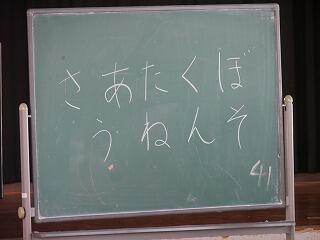 さあたくぼ
うねんそ
41